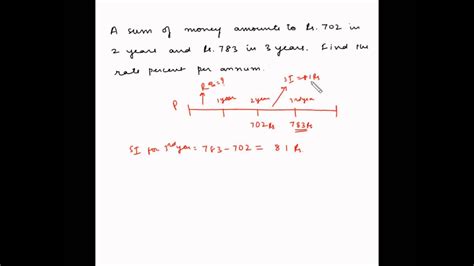 A sum of money amounts to Rs. 702 in
2 years and Rs. 783 in 3 years. Find the
rate percent per annum.
SI = 81 Rs
R = ?
P 1 year 2 year 3rd year
702 Rs 783 Rs
SI for 3rd year = 783 - 702 = 81 Rs.